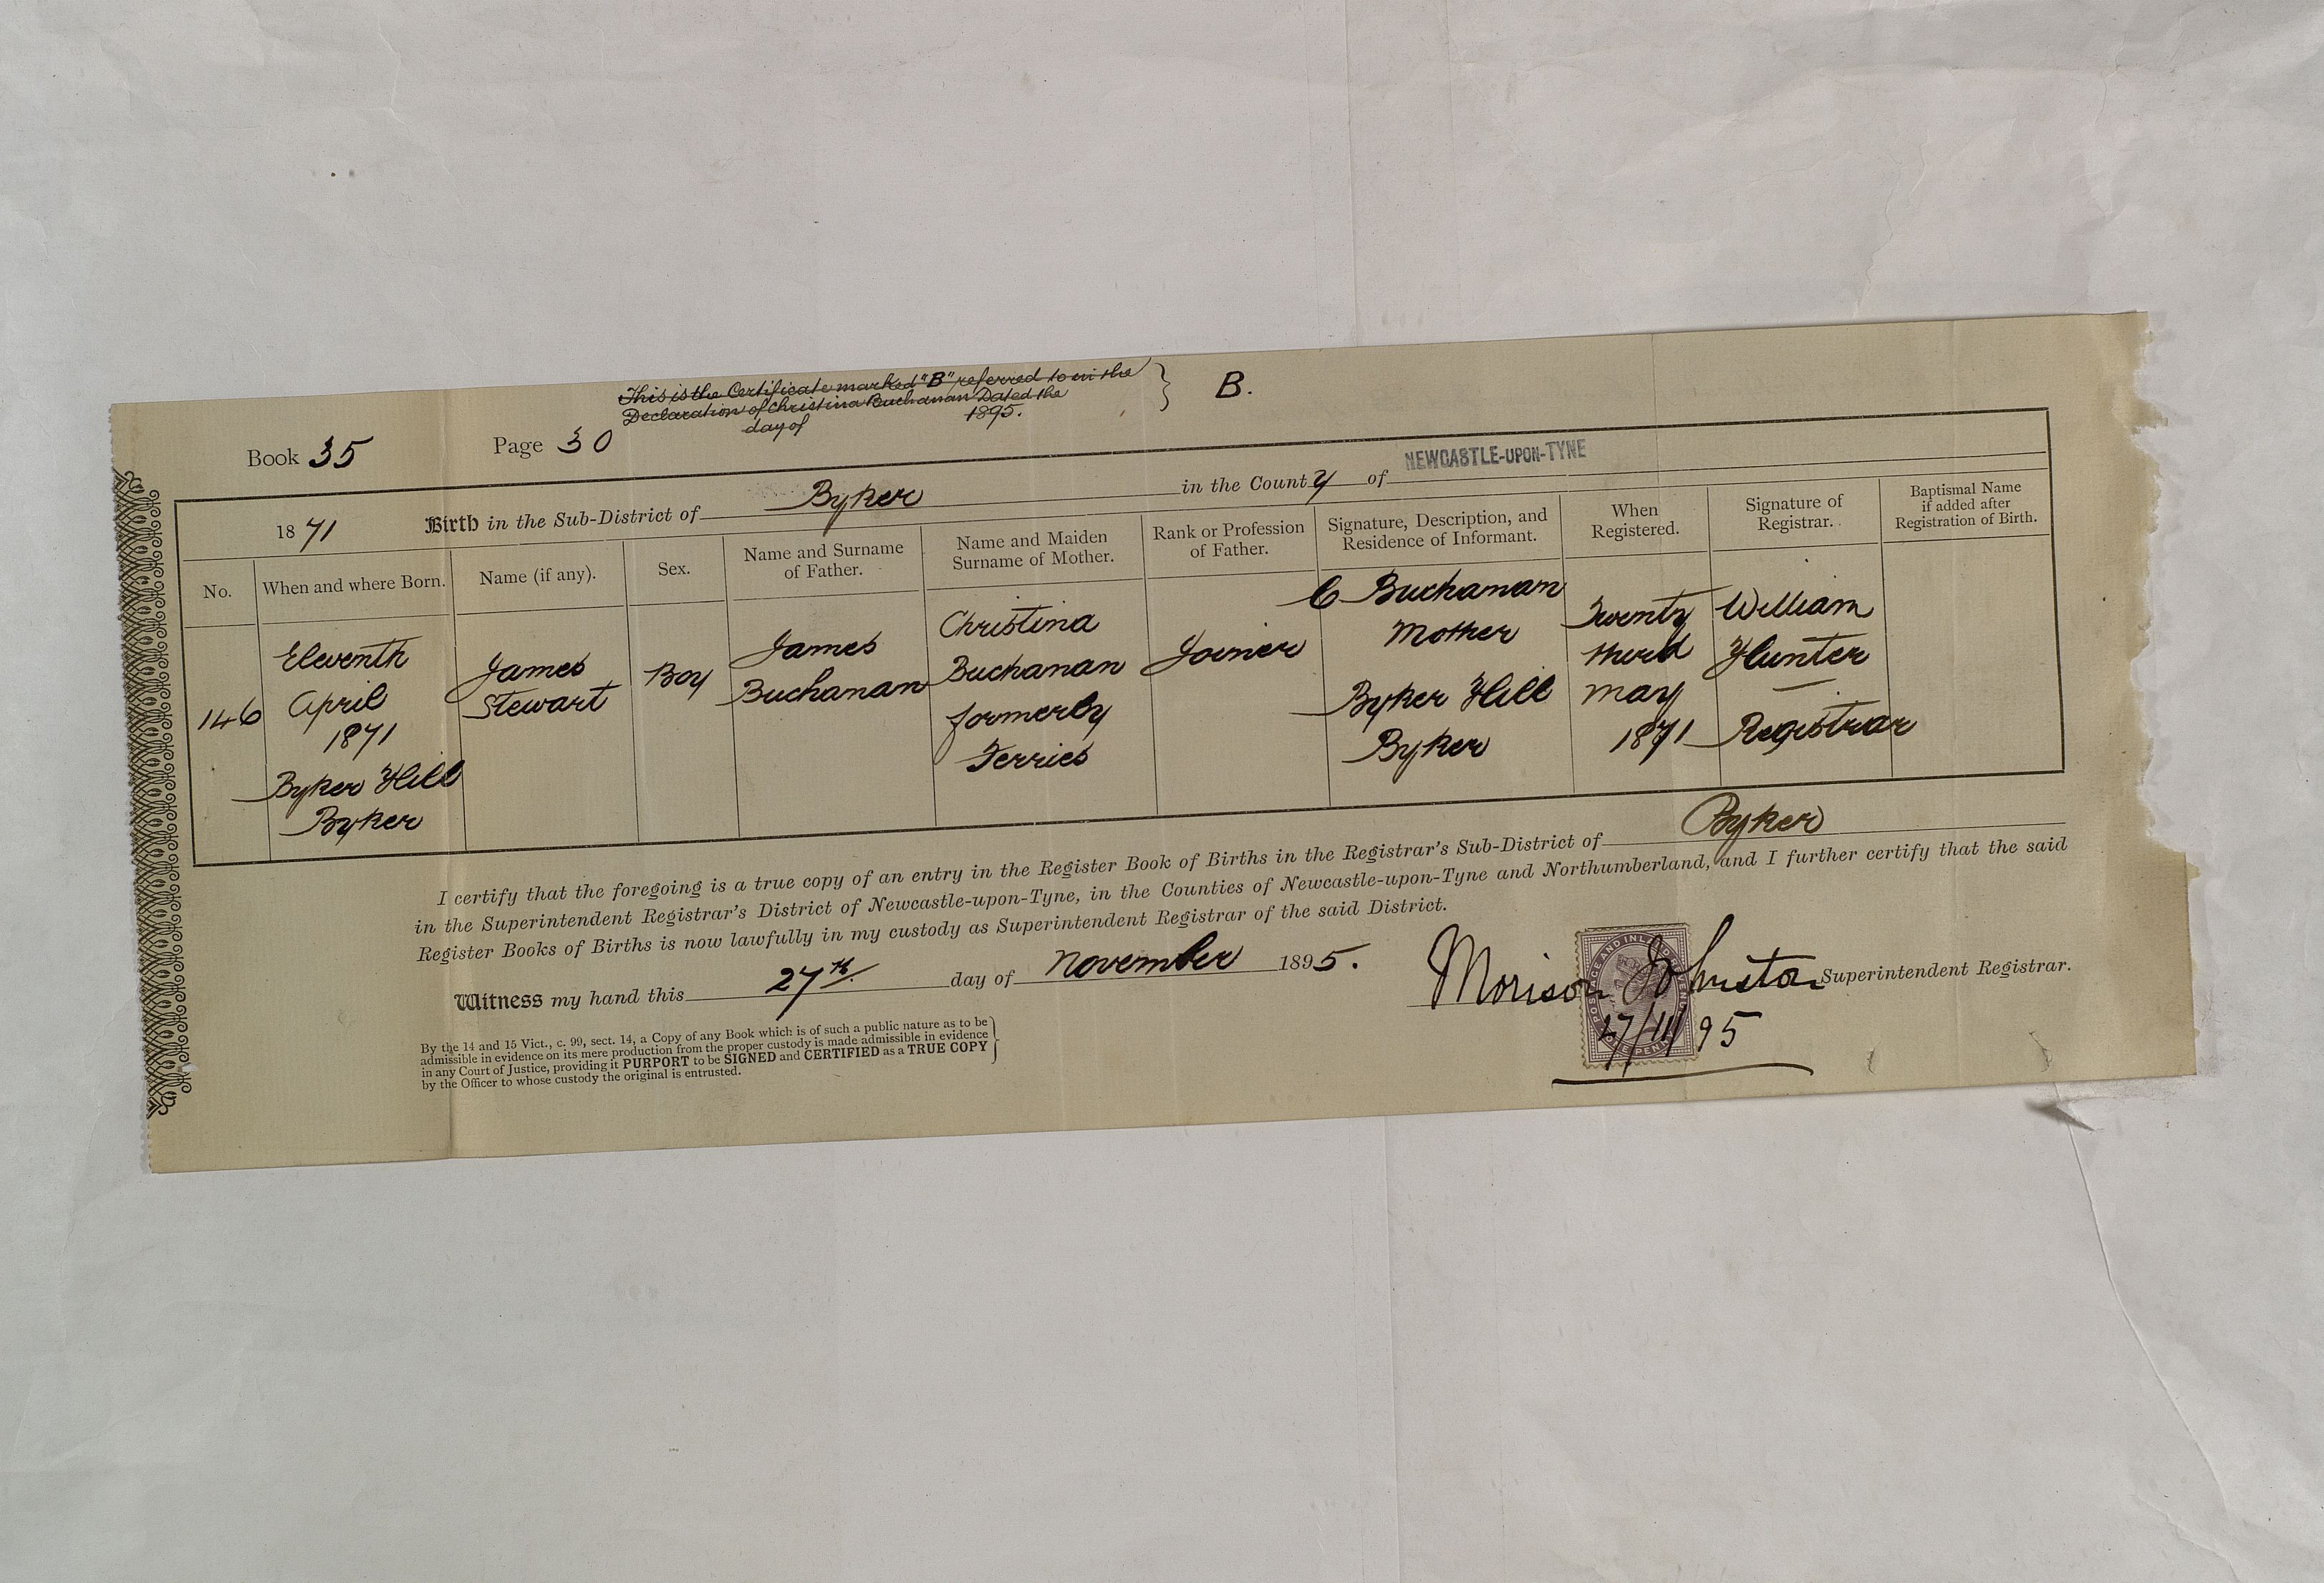 This is the Certificate marked "B" referred to in the
Declaration of Christina Buchanan Dated the
day of 1895.
B.
Book 35 Page 30
NEWCASTLE-UPON-TYNE
1871 Birth in the Sub-District of Byker in the County of
No.
When and where Born.
Name (if any).
Sex.
Name and Surname
of Father.
Name and Maiden
Surname of Mother.
Rank or Profession
of Father.
Signature, Description, and
Residence of Informant.
When
Registered.
Signature of
Registrar.
Baptismal Name
if added after
Registration of Birth.
146
Eleventh
April
1871
Byker Hill
Byker
James
Stewart
Boy
James
Buchanan
Christina
Buchanan
formerly
Ferries
Joiner
C Buchanan
Mother
Byker Hill
Byker
Twenty
third
May
1871
William
Hunter
Registrar
I certify that the foregoing is a true copy of an entry in the Register Book of Births in the Registrar's Sub-District of Byker
in the Superintendent Registrar's District of Newcastle-upon-Tyne, in the Counties of Newcastle-upon-Tyne and Northumberland, and I further certify that the said
Register Books of Births is now lawfully in my custody as Superintendent Registrar of the said District.
Witness my hand this 27th day of November 1895.
Morison Johnston Superintendent Registrar.
27/11/95
By the 14 and 15 Vict., c. 99, sect. 14, a Copy of any Book which is of such a public nature as to be
admissible in evidence on its mere production from the proper custody is made admissible in evidence
in any Court of Justice, providing it PURPORT to be SIGNED and CERTIFIED as a TRUE COPY
by the Officer to whose custody the original is entrusted.